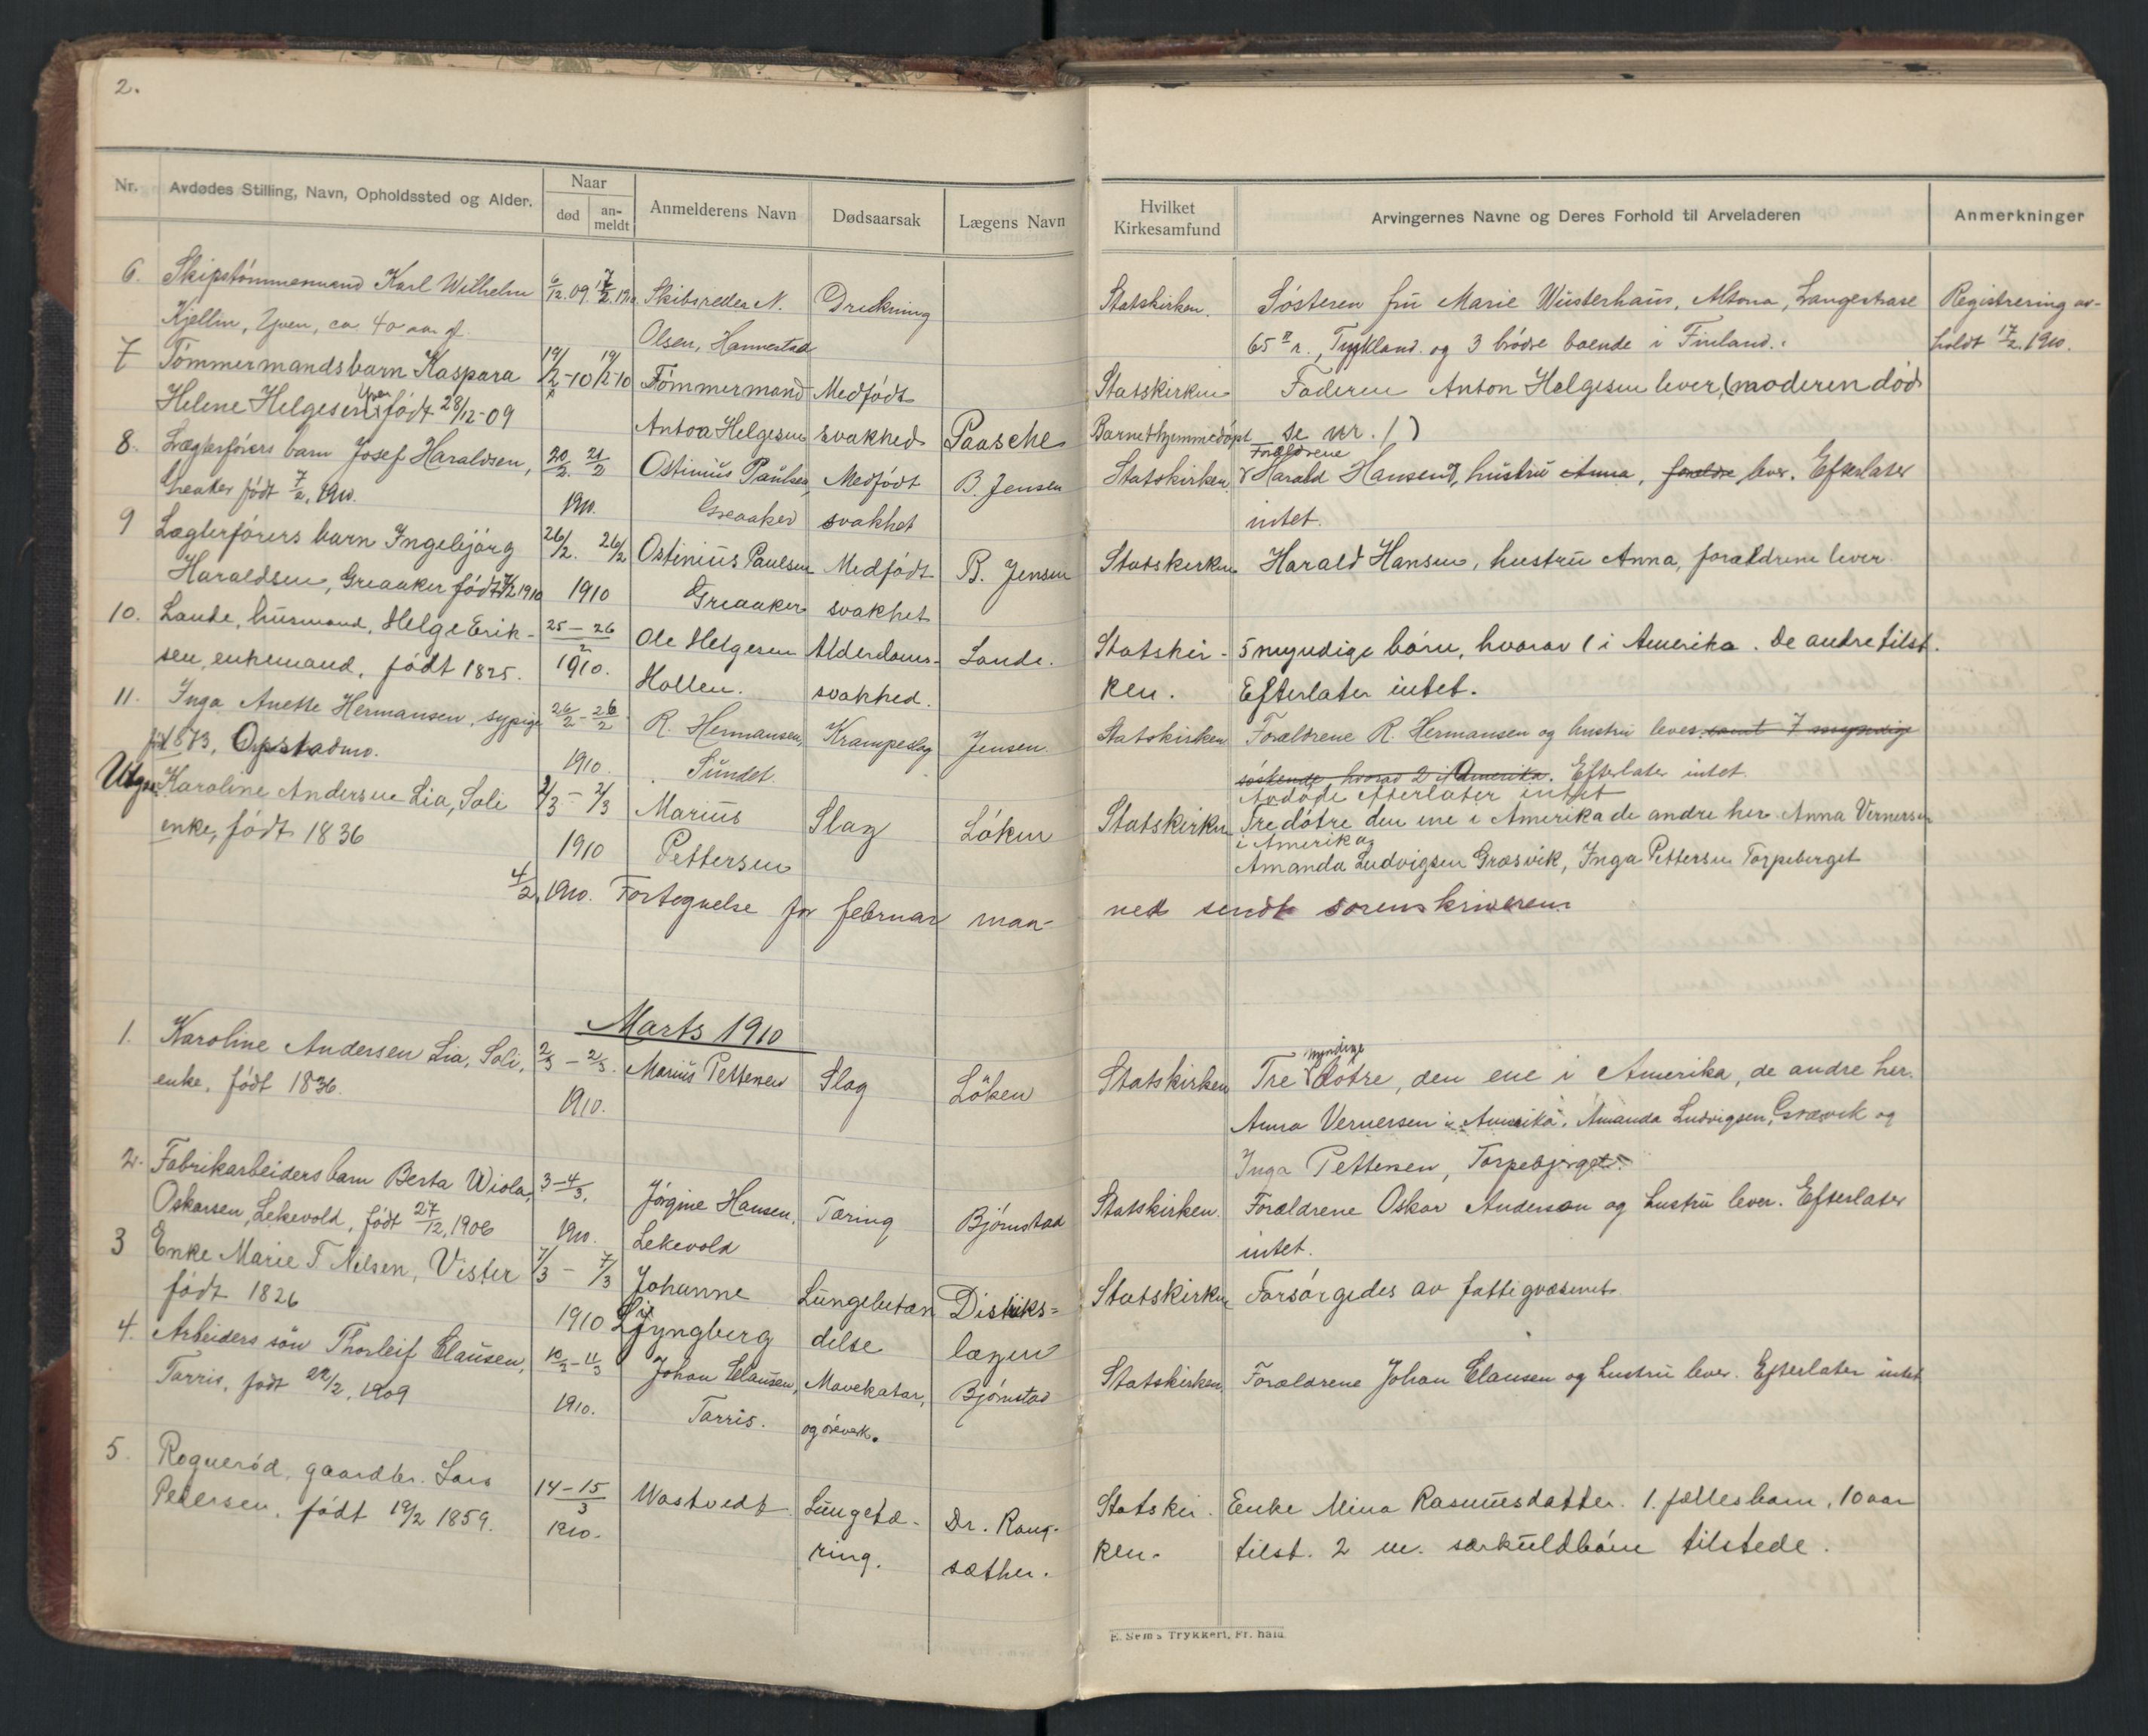 2.
Nr. Avdødes Stilling, Navn, Opholdssted og Alder. Naar død an-meldt Anmelderens Navn Dødsaarsak Lægens Navn Hvilket Kirkesamfund Arvingernes Navne og Deres Forhold til Arveladeren Anmerkninger
6. Skipstömmermand Karl Wilhelm 6/12.09. 17/2.1910 Skibsreder N. Drukning Statskirken. Søsteren fru Marie Wüsterhaus, Altona, Langestrase Registrering av-
Kjellin, Yven, ca. 40 aar gl. Olsen, Hannestad 65 II r., Tyskland. og 3 brödre boende i Finland. holdt 17/2.1910.
7 Tömmermandsbarn Kaspara 19/2-10 19/2-10 Tömmermand Medfödt Statskirken Faderen Anton Helgesen lever, (moderen död
Helene Helgesen Yven födt 28/12-09 Anton Helgesen svakhed Paasche Barnet hjemmedöpt se nr. 1)
8. Lægterförers barn Josef Haraldsen, 20/2. 21/2 Ostinius Paulsen, Medfödt B. Jensen Statskirken. Forældrene Harald Hansen, hustru Anna, forældre lever. Efterlater
Greaker födt 7/2.1910. 1910. Greaaker svakhet intet.
9 Lægterförers barn Ingebjörg 26/2. 26/2 Ostinius Paulsen Medfödt B. Jensen Statskirken Harald Hansen, hustru Anna, forældrene lever
Haraldsen, Greaaker födt 7/2 1910 1910 Greaaker svakhet
10. Lande, husmand, Helge Erik- 25-26/2 Ole Helgesen Alderdoms- Lande. Statskir- 5 myndige börn, hvorav 1 i Amerika. De andre tilst.
sen, enkemand, födt 1825. 1910. Hollen. svakhed. ken. Efterlater intet.
11. Inga Anette Hermansen, sypige 26/2-26/2 R. Hermansen, Krampeslag Jensen. Statskirken Forældrene R. Hermansen og hustru lever. samt 7 myndige
föt 1873, Opstadmo. 1910. Sundet. söskende, hvorav 2 i Amerika. Efterlater intet.
Avdöde efterlater intet
Utgaar Karoline Andersen Lia, Soli 2/3-2/3 Marius Slag Löken Statskirken Tre dötre den ene i Amerika de andre her Anna Vernersen
enke, födt 1836 1910 Pettersen i Amerika og Amanda Ludvigsen Græsvik, Inga Pettersen Torpeberget
4/2.1910. Fortegnelse for februar maa- ned sendt sorenskriveren.
Marts 1910
1. Karoline Andersen Lia, Soli, 2/3-2/3. Marius Pettersen Slag Löken Statskirken Tre myndige dötre, den ene i Amerika, de andre her.
enke, födt 1836. 1910. Anna Vernersen i Amerika. Amanda Ludvigsen, Græsvik og
Inga Pettersen, Torpebjerget.
2. Fabrikarbeiders barn Berta Wiola 3-4/3. Jörgine Hansen, Tæring Björnstad Statskirken. Forældrene Oskar Anderson og hustru lever. Efterlater
Oskarsen, Lekevold, födt 27/12.1906 1910. Lekevold intet.
3 Enke Marie T Nilsen, Vister 7/3-7/3 Johanne Lungebetæn Distrikts= Statskirken Forsörgedes av fattigvæsenet
födt 1826 1910 Ljyngberg delse lægen
4. Arbeiders sön Thorleif Clausen, 10/3-11/3 Johan Clausen, Mavekatar, Björnstad Statskirken. Forældrene Johan Clausen og hustru lever. Efterlater intet
Tarris, födt 22/2.1909 1910. Tarris. og öreverk.
5. Rognerød, gaardbr. Lars 14-15/3 Wastvedt Lungetæ- Dr. Rang- Statskir. Enke Mina Rasmusdatter. 1. fællesbarn, 10 aar
Pedersen, födt 19/2 1859. 1910. ring. sæther. ken. tilst. 2 m. særkuldbörn tilstede.
E. Sems Trykkeri, Fr.hald.